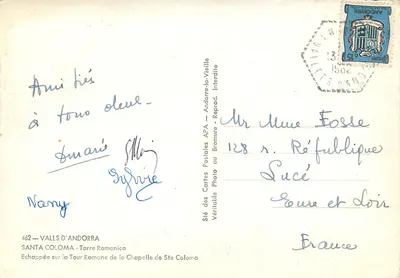 ANDORRE
Amitiés
à tous deux.
Sylvie
Nany
462 — VALLS D'ANDORRA
SANTA COLOMA - Torre Romanica
Echappée sur la Tour Romane de la Chapelle de Ste Coloma
Sté des Cartes Postales APA — Andorre-la-Vieille
Véritable Photo au Bromure - Reprod. Interdite
Mr Mme Fosse
128 r. République
Lucé
Eure et Loir
France